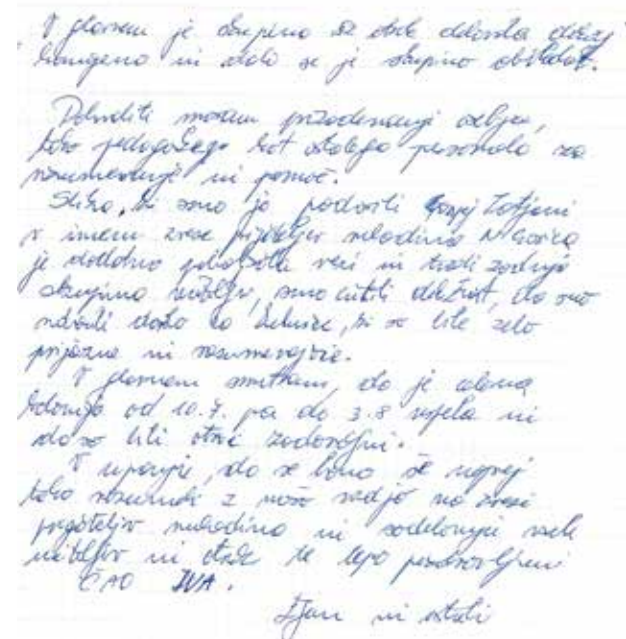 V glavnem je skupina za otroke delovala dokaj
homogeno in dalo se je skupino obvladat.
Pohvaliti moram prizadevanje osebja,
tako pedagoškega kot ostalega personala za
razumevanje in pomoč.
Slika, ki smo jo podarili gospej Tatjani
v imenu zveze prijateljev mladine N. Gorica
je dodobra vsi in tudi zadnja
skupina učiteljev, smo čutili dolžnost, da smo
ki so bile zelo
prijazne in razumevajoče.
V glavnem smatram, da je celotna
kolonija od 10.7. pa do 3.8 uspela in
da so bili otroci zadovoljni.
V upanju, da se bomo še naprej
tako razumeli z našo na zvezi
prijateljev mladine in sodelovanje vseh
učiteljev in otrok še lepo pozdravljeni
ČAO IVA.
in ostali